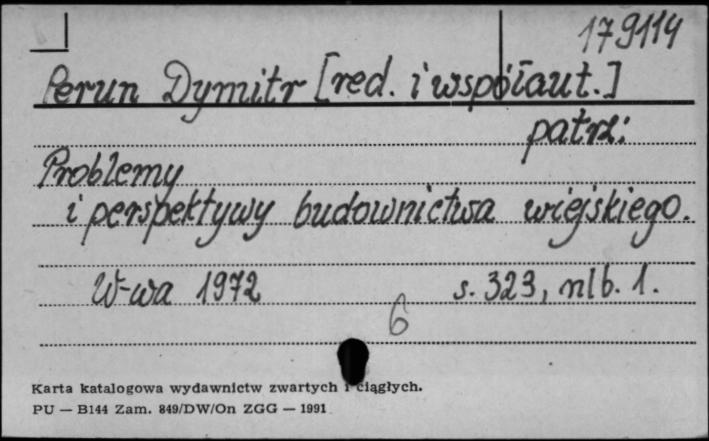 179114
Perun Dymitr [red. i współaut.]
patrz:
Problemy
i perspektywy budownictwa wiejskiego.
W-wa 1972 s. 323, nlb. 1.
6
Karta katalogowa wydawnictw zwartych i ciągłych.
PU — B144 Zam. 849/DW/On ZGG — 1991